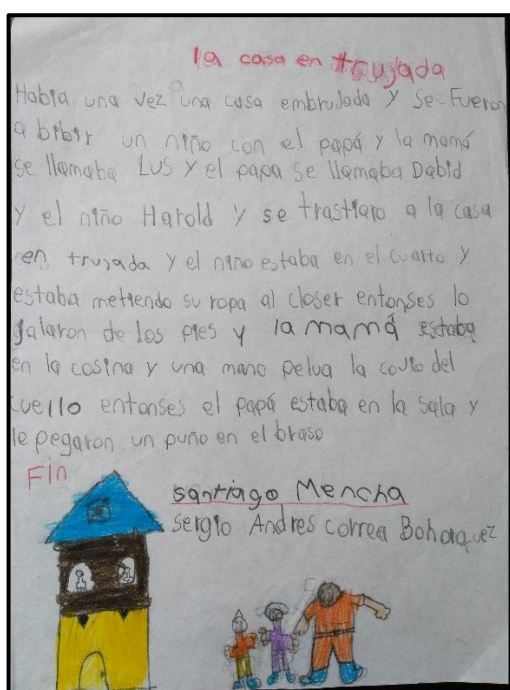 la casa en trujada
Habia una vez una casa embrujada y se Fueron
a bibir un niño con el papá y la mamá
se llamaba LUS y el papa se llamaba Dabid
y el niño Harold y se trastiaro a la casa
en trujada y el niño estaba en el cuarto y
estaba metiendo su ropa al closer entonses lo
jalaron de los pies y la mamá estaba
en la cosina y una mano pelua la cojio del
cuello entonses el papá estaba en la sala y
le pegaron un puño en el braso
Fin
santiago Mencha
sergio Andres correa Bohorquez